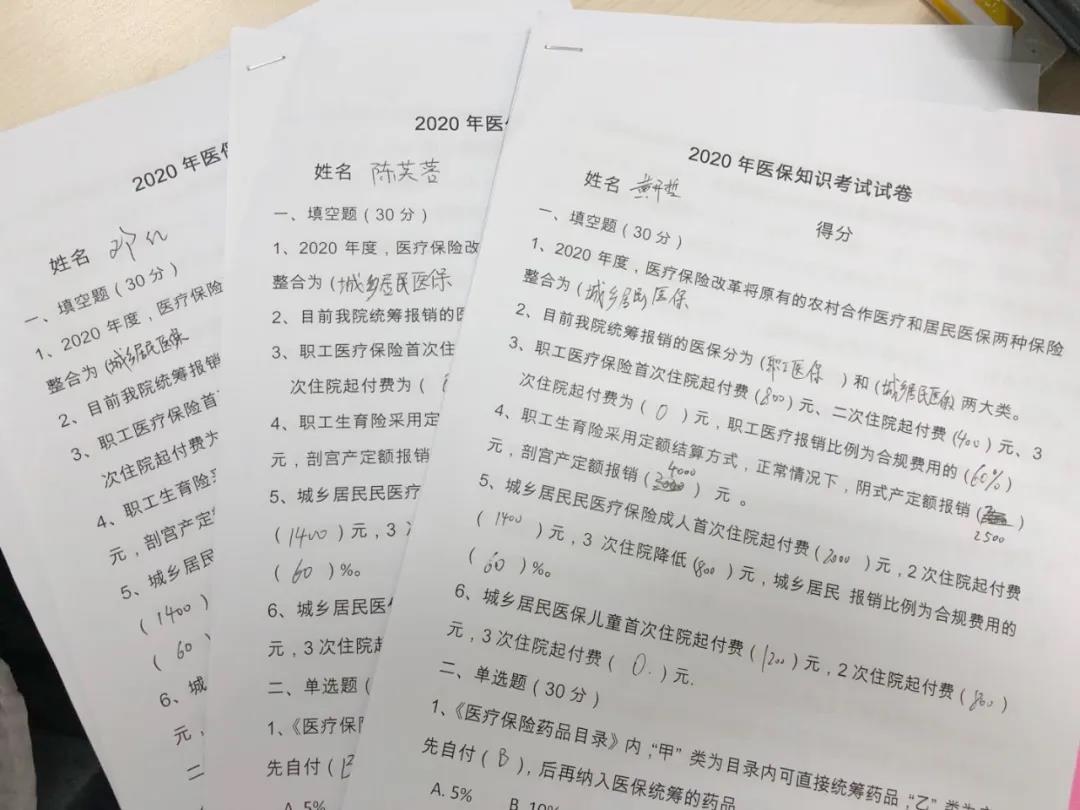 2020 年医保
姓名
一、填空题（30分）
1、2020 年度，医疗保险
整合为（城乡居民医保
2、目前我院统筹报
3、职工医疗保险首
次住院起付费为
4、职工生育险
元，剖宫产定
5、城乡居民
（1400）
（ 60 ）
6、城
元，
二
2020 年医
姓名 陈芙蓉
一、填空题（30分）
1、2020 年度，医疗保险改
整合为（城乡居民医保
2、目前我院统筹报销的医
3、职工医疗保险首次住
次住院起付费为（
4、职工生育险采用定
元，剖宫产定额报销
5、城乡居民民医疗
（1400）元，3
（ 60 ）%。
6、城乡居民医
元，3次住院起
二、单选题（
1、《医疗保
先自付（
A. 5%
2020 年医保知识考试试卷
姓名 黄
得分
一、填空题（30分）
1、2020 年度，医疗保险改革将原有的农村合作医疗和居民医保两种保险
整合为（城乡居民医保
2、目前我院统筹报销的医保分为（职工医保 ）和（城乡居民医保 两大类。
3、职工医疗保险首次住院起付费（800）元、二次住院起付费（400）元、3
次住院起付费为（ 0 ）元，职工医疗报销比例为合规费用的（60%）
4、职工生育险采用定额结算方式，正常情况下，阴式产定额报销（ 2500 ）
元，剖宫产定额报销（ 4000 ）元 。
5、城乡居民民医疗保险成人首次住院起付费（2000 ）元，2 次住院起付费
（ 1400 ）元，3 次住院降低（800 ）元，城乡居民 报销比例为合规费用的
（ 60 ）%。
6、城乡居民医保儿童首次住院起付费（1200）元，2 次住院起付费（800）
元，3 次住院起付费（ 0. ）元.
二、单选题（30 分）
1、《医疗保险药品目录》内，“甲”类为目录内可直接统筹药品，“乙”类为
先自付（ B ），后再纳入医保统筹的药品
A. 5% B. 10%